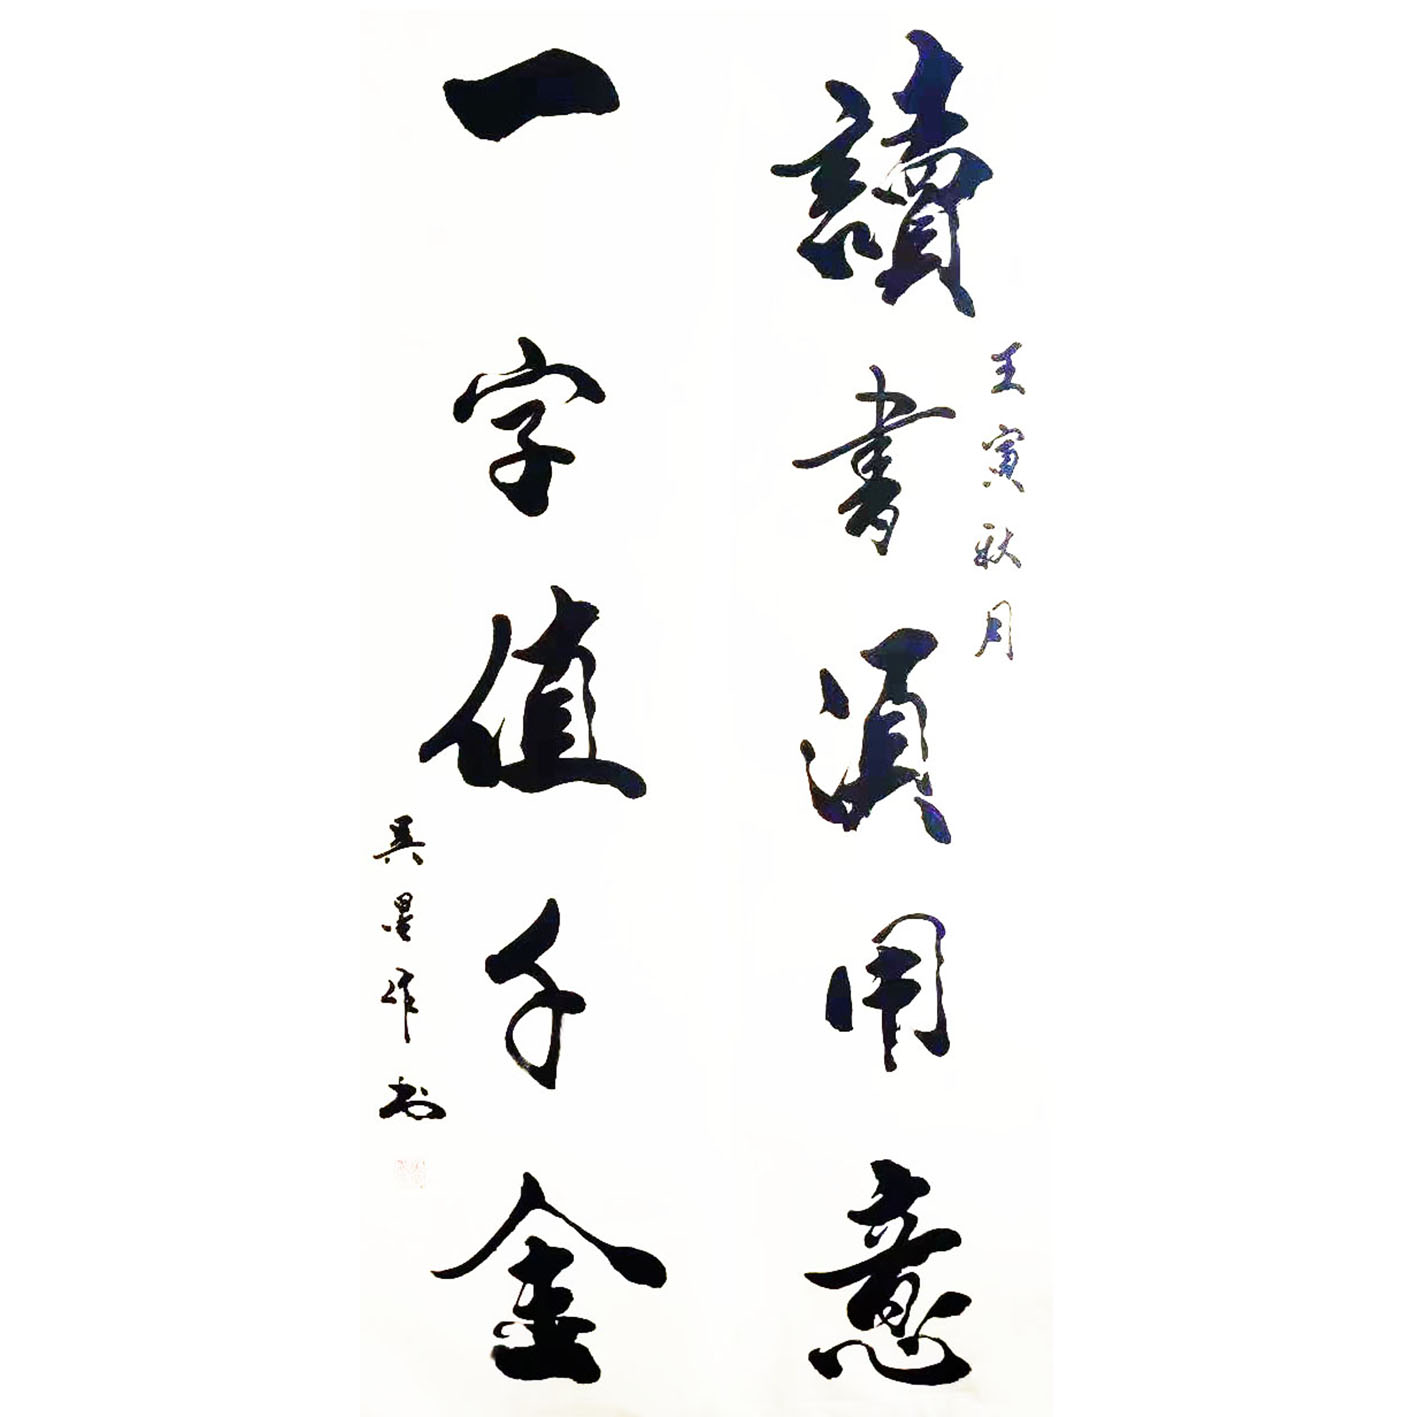 讀書須用意
壬寅秋月
一字值千金
吴墨作书